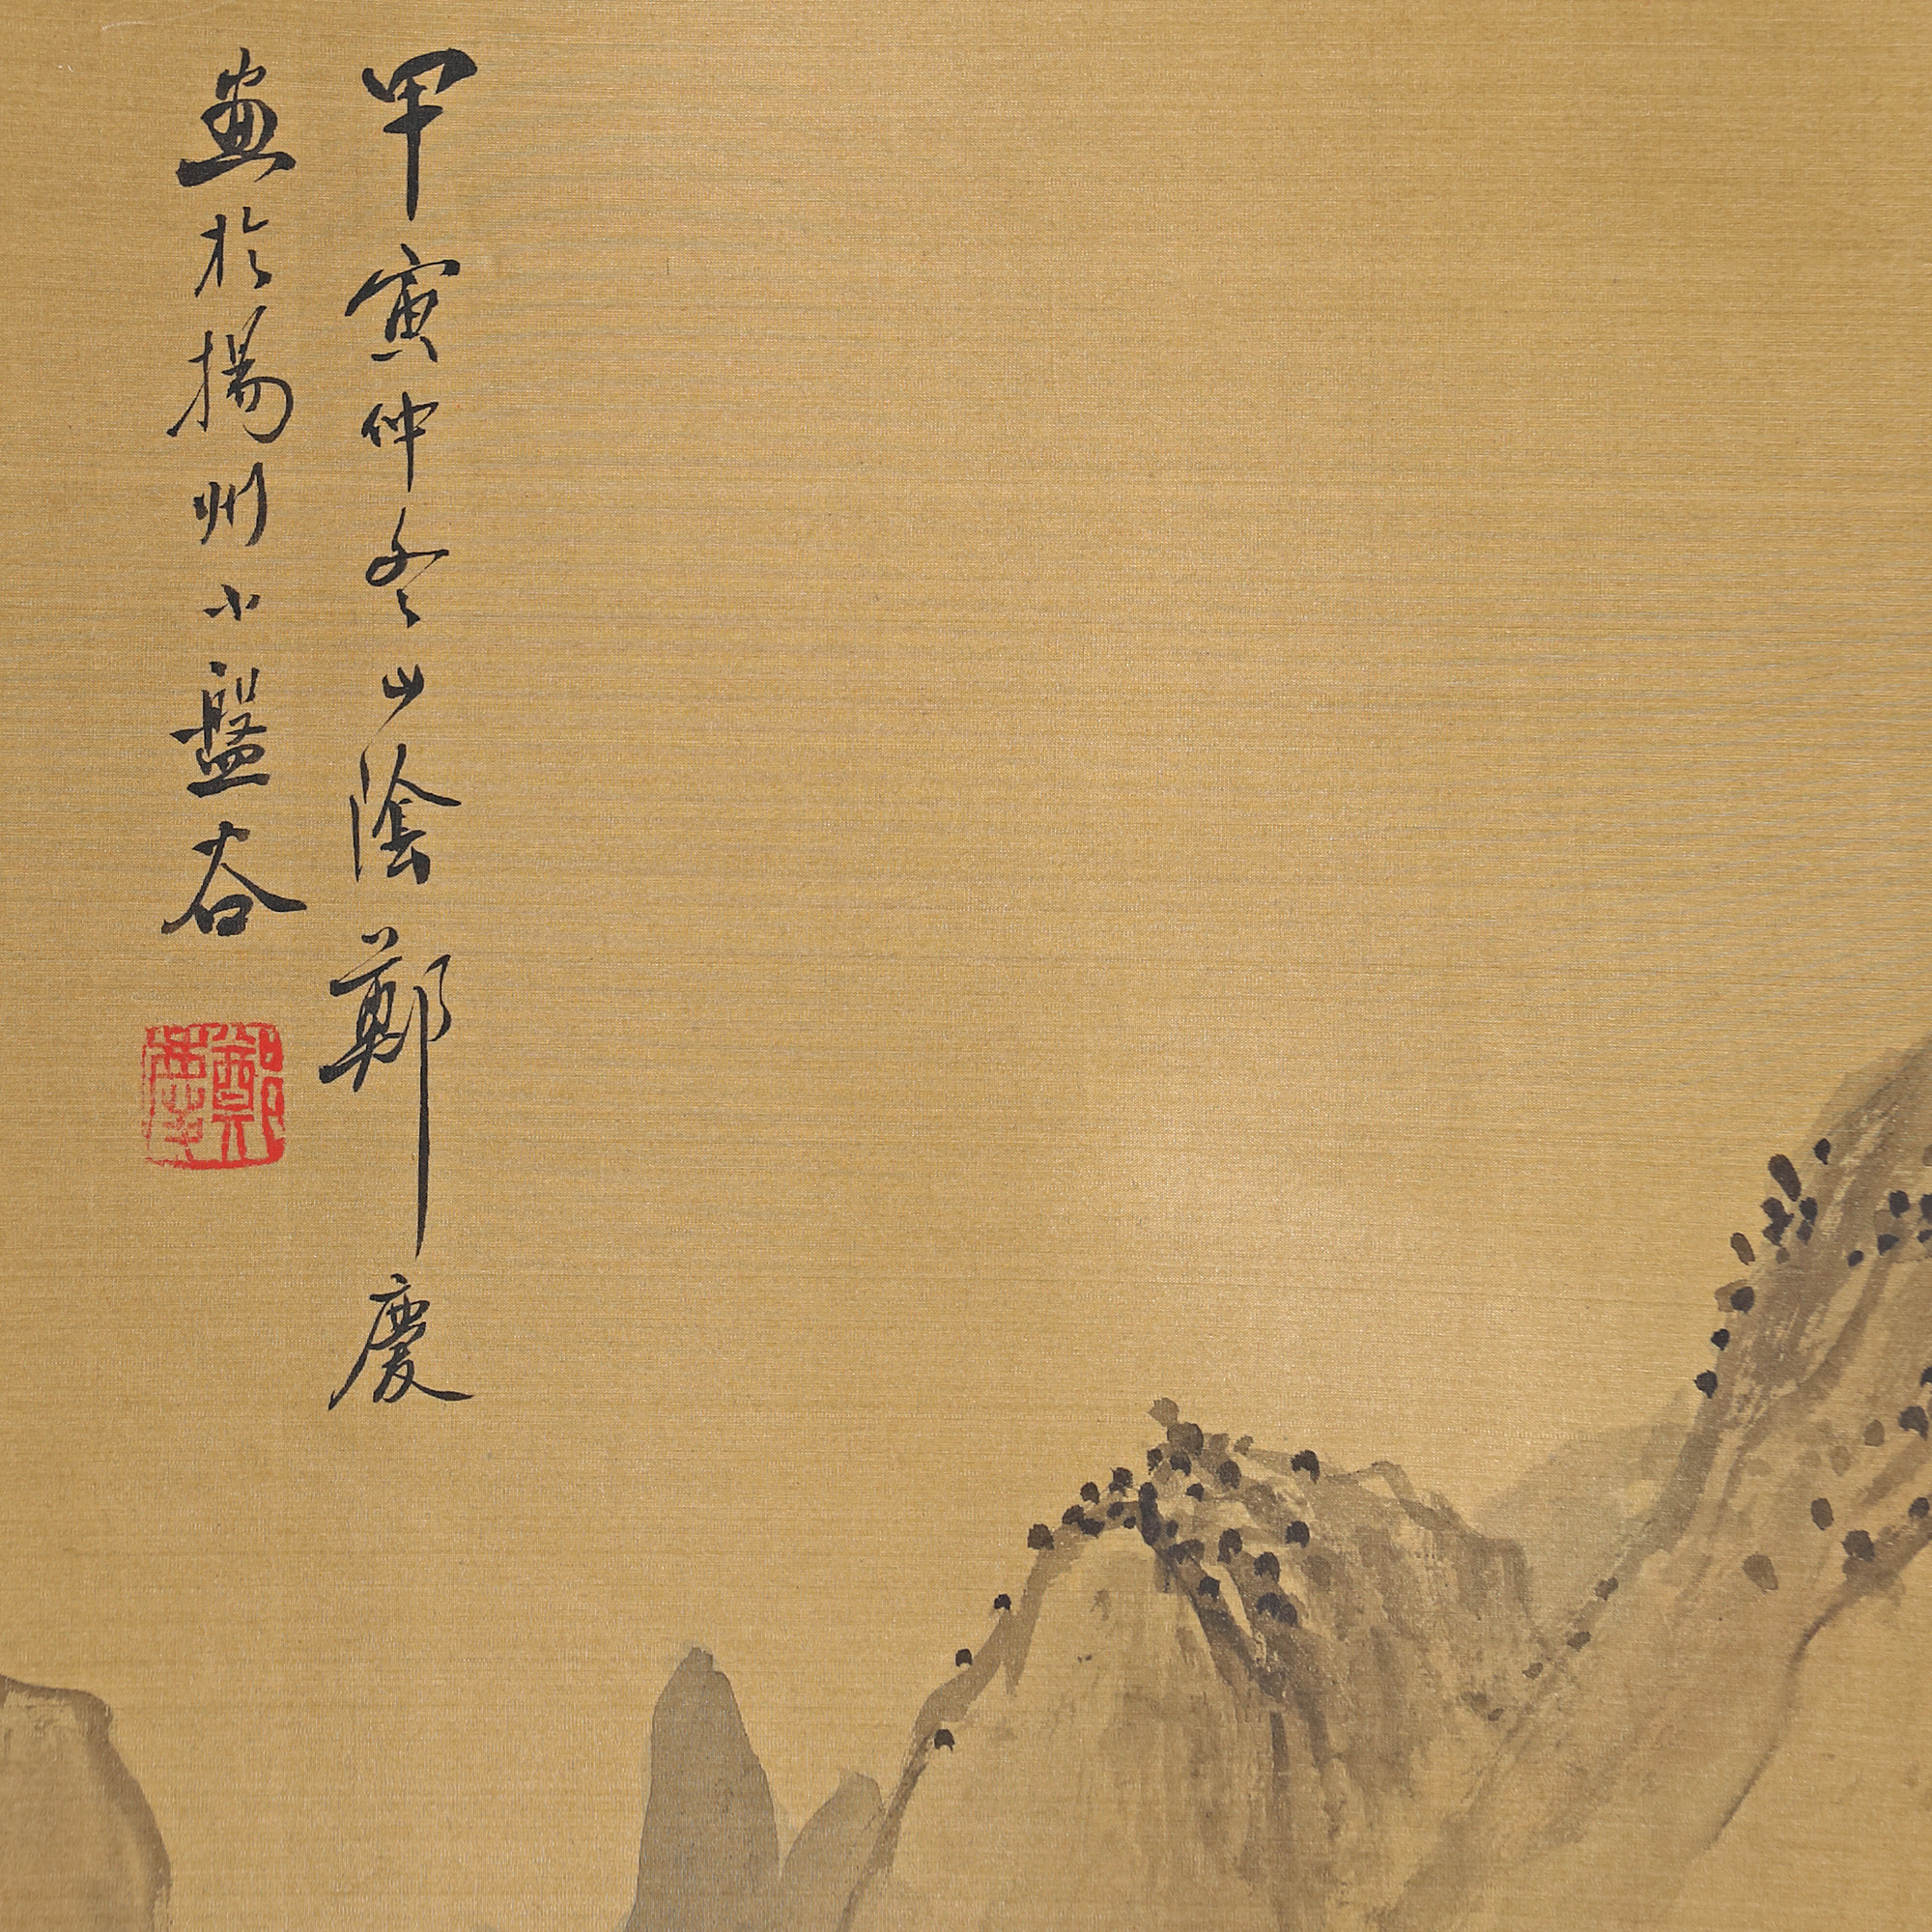 甲寅仲冬山陰鄭慶
畫於揚州小盤谷
鄭慶